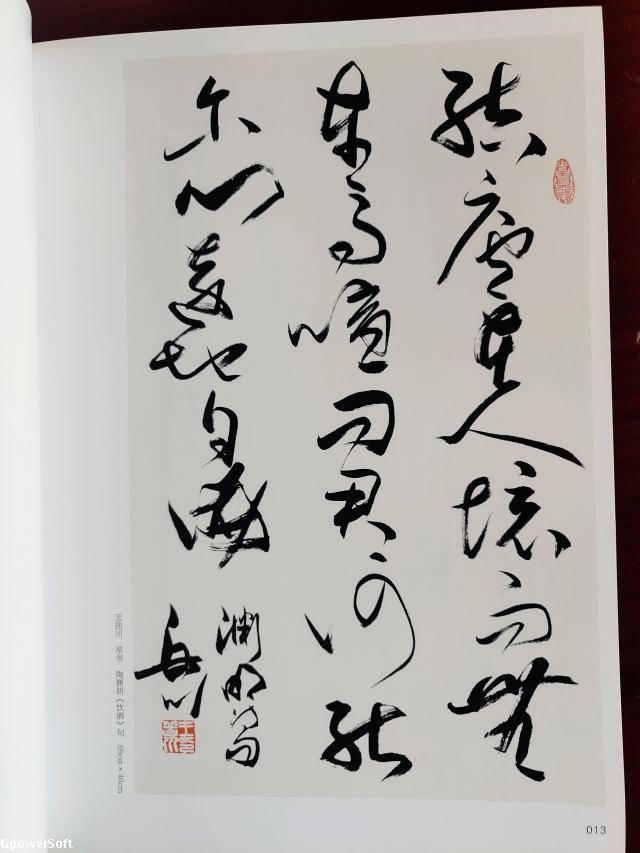 結廬在人境而無
車馬喧問君何能
尔心遠地自偏
淵明
岳川
王岳川 草书 陶渊明《饮酒》句 69cm×46cm
013
GpowerSoft